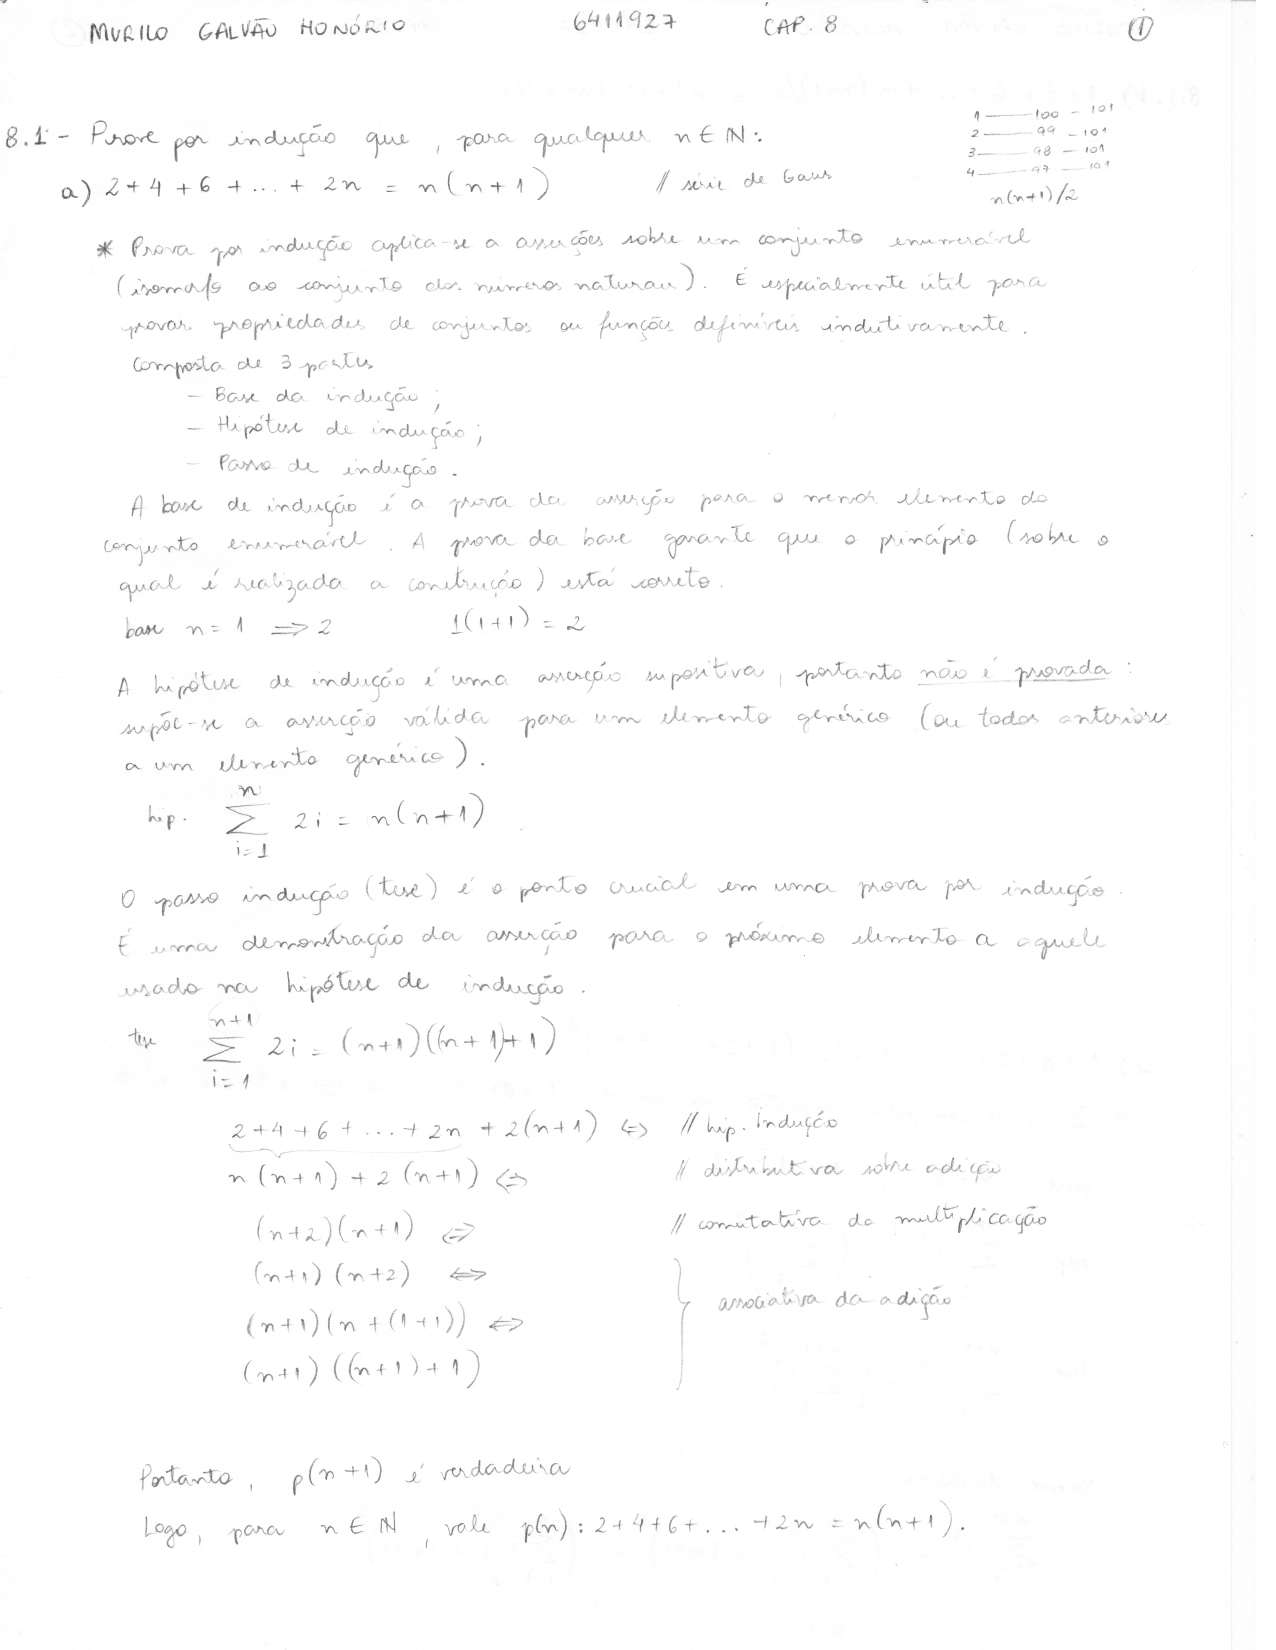 MURILO GALVÃO HONÓRIO 6411927 CAP. 8 1
8.1 - Prove por indução que, para qualquer n ∈ ℕ:
1 —— 100 - 101
2 —— 99 - 101
3 —— 98 - 101
4 —— 97 - 101
n(n+1)/2
a) 2 + 4 + 6 + ... + 2n = n(n+1) // série de Gaus
* Prova por indução aplica-se a asserções sobre um conjunto enumerável
(isomorfo ao conjunto dos números naturais). É especialmente útil para
provar propriedades de conjuntos ou funções definíveis indutivamente.
Composta de 3 partes
- Base da indução;
- Hipótese de indução;
- Passo de indução.
A base de indução é a prova da asserção para o menor elemento do
conjunto enumerável. A prova da base garante que o princípio (sobre o
qual é realizada a construção) está correto.
base n = 1 ⇒ 2 1(1+1) = 2
A hipótese de indução é uma asserção supositiva, portanto não é provada:
supõe-se a asserção válida para um elemento genérico (ou todos anteriores
a um elemento genérico).
hip. ∑_{i=1}^{n} 2i = n(n+1)
O passo indução (tese) é o ponto crucial em uma prova por indução.
É uma demonstração da asserção para o próximo elemento a aquele
usado na hipótese de indução.
tese ∑_{i=1}^{n+1} 2i = (n+1)((n+1)+1)
2+4+6+...+2n + 2(n+1) ⇔ // hip. Indução
n(n+1) + 2(n+1) ⇔ // distributiva sobre adição
(n+2)(n+1) ⇔ // comutativa da multiplicação
(n+1)(n+2) ⇔
(n+1)(n+(1+1)) ⇔ } associativa da adição
(n+1)((n+1)+1)
Portanto, p(n+1) é verdadeira
Logo, para n ∈ ℕ, vale p(n): 2+4+6+...+2n = n(n+1).